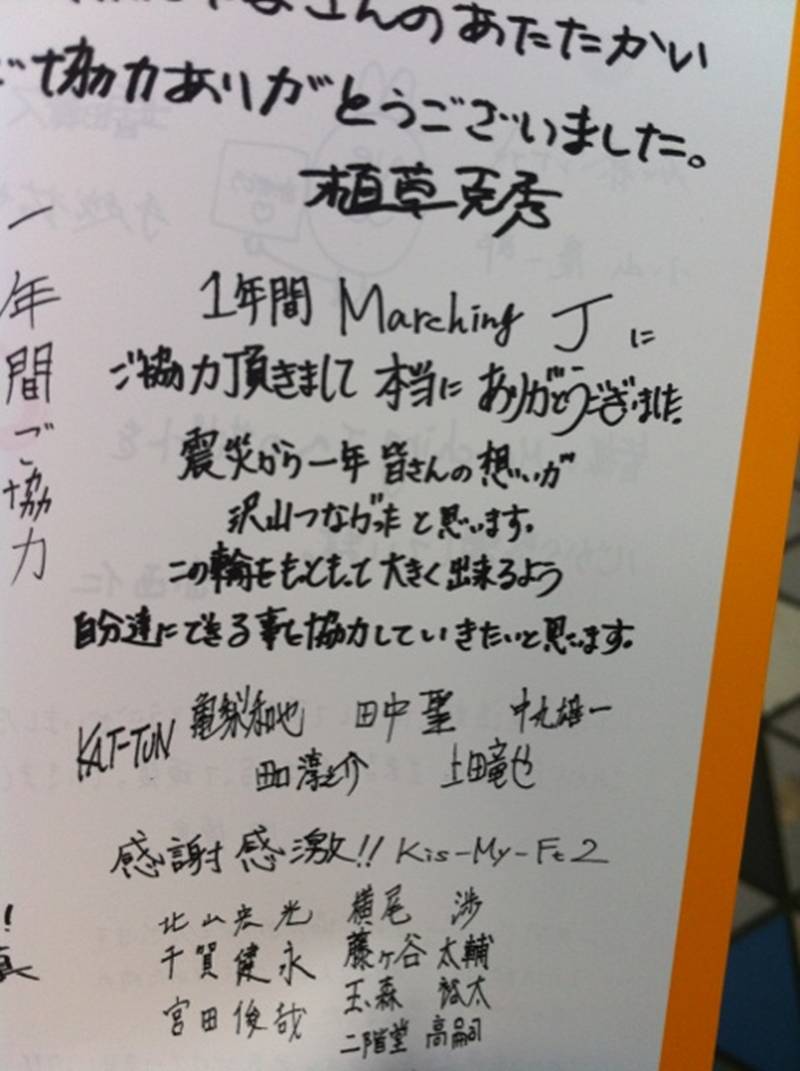 さんのあたたかい
ご協力ありがとうございました。
植草克秀
一年間ご協力
1年間 Marching J に
ご協力頂きまして 本当に ありがとうございました。
震災から一年 皆さんの想いが
沢山つながったと思います。
この輪をもっともって大きく出来るよう
自分達にできる事を協力していきたいと思います。
KAT-TUN 亀梨和也 田中聖 中丸雄一
田口淳之介 上田竜也
感謝感激!! Kis-My-Ft2
北山宏光 横尾 渉
千賀健永 藤ヶ谷 太輔
宮田俊哉 玉森 裕太
二階堂 高嗣